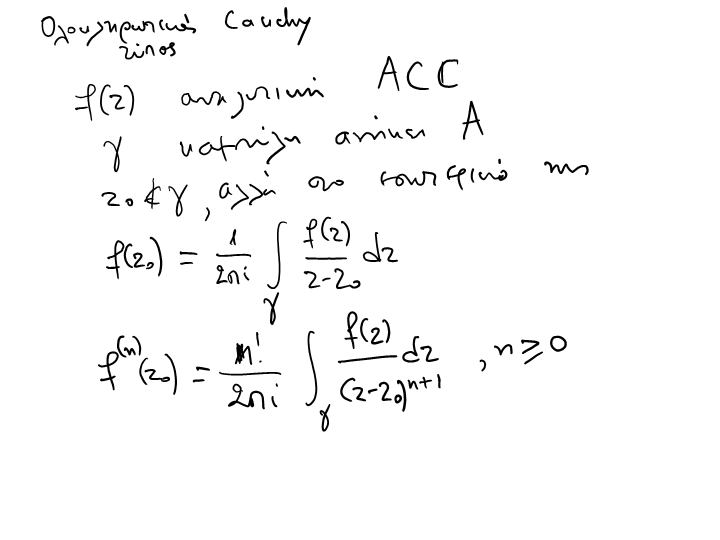 Ολοκληρωτικός Cauchy
τύπος
f(z) αναλυτική A⊂ℂ
γ καμπύλη απλή A
z₀ ∉ γ, αλλά στο εσωτερικό της
f(z₀) = \frac{1}{2πi} ∫_γ \frac{f(z)}{z-z₀} dz
f^{(n)}(z₀) = \frac{n!}{2πi} ∫_γ \frac{f(z)}{(z-z₀)^{n+1}} dz , n ≥ 0